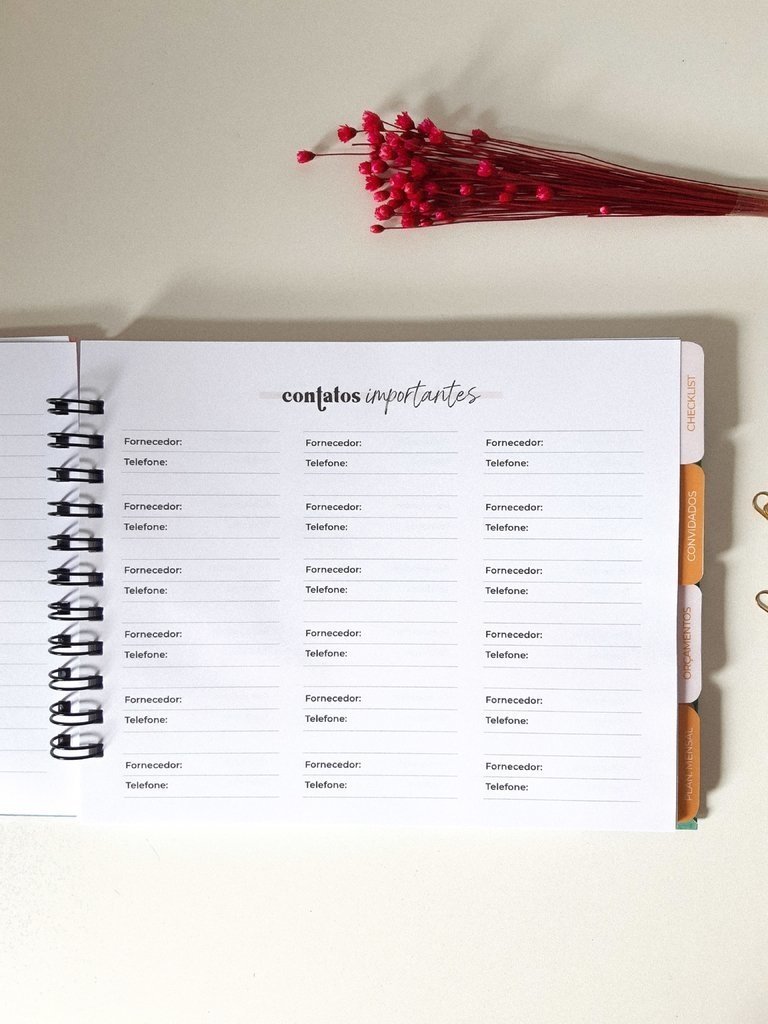 contatos importantes
Fornecedor: Fornecedor: Fornecedor:
Telefone: Telefone: Telefone:
Fornecedor: Fornecedor: Fornecedor:
Telefone: Telefone: Telefone:
Fornecedor: Fornecedor: Fornecedor:
Telefone: Telefone: Telefone:
Fornecedor: Fornecedor: Fornecedor:
Telefone: Telefone: Telefone:
Fornecedor: Fornecedor: Fornecedor:
Telefone: Telefone: Telefone:
Fornecedor: Fornecedor: Fornecedor:
Telefone: Telefone: Telefone:
CHECKLIST
CONVIDADOS
ORÇAMENTOS
PLAN. MENSAL